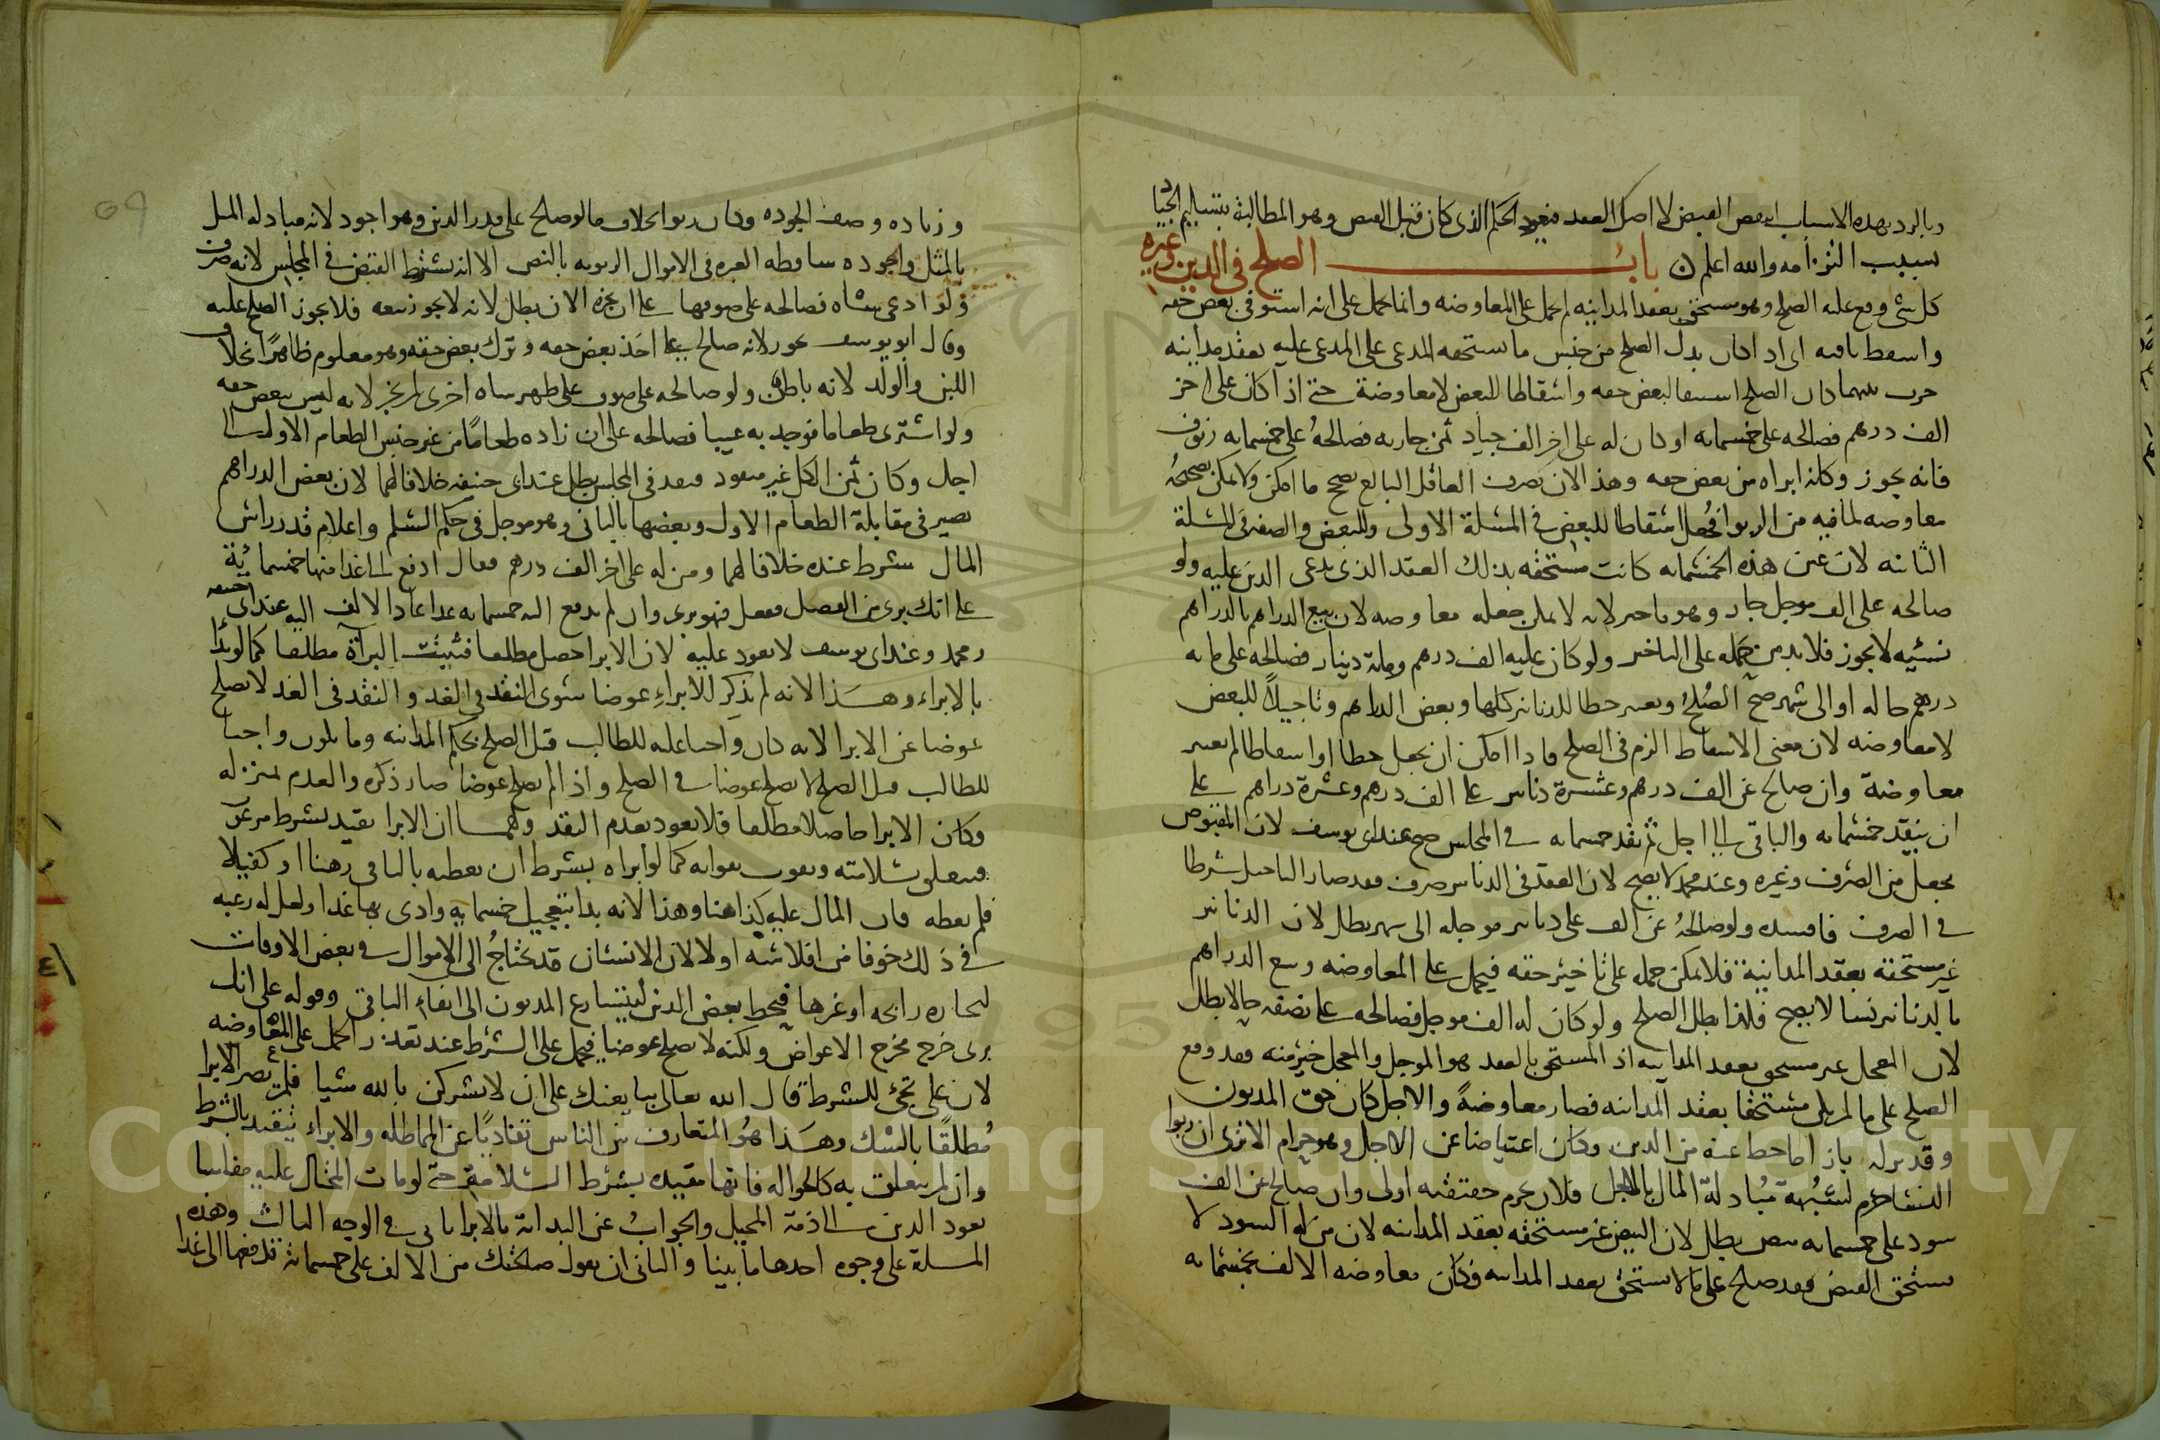 وبالرد بهذه الاسباب ينتقض القبض لا اصل العقد فيعود الحكم الذي كان قبل القبض وهو المطالبة بتسليم الجياد
بسبب التزامه والله اعلم باب الصلح في الدين وغيره
كل شي وقع عليه الصلح وهو مستحق بعقد المداينه لم يحمل على المعاوضه وانما يحمل على انه استوفى بعض حقه
واسقط باقيه اي اذا كان بدل الصلح من جنس ما يستحقه المدعي على المدعى عليه بعقد مداينه
جرت بينهما كان الصلح استيفا لبعض حقه واسقاطا للبعض لا معاوضة حتى اذا كان على اخر
الف درهم فصالحه على خمسمايه او كان له على اخر الف جياد ثمن جاريه فصالحه على خمسمايه زيوف
فانه يجوز وكانه ابراه من بعض حقه وهذا لان تصرف العاقل البالغ يصح ما امكن ولا يمكن تصحيحه
معاوضه لما فيه من الربوا فجعل اسقاطا للبعض في المسئلة الاولى وللبعض والصفه في المسئلة
الثانيه لان عين هذه الخمسمايه كانت مستحقه بذلك العقد الذي يدعى الدين عليه ولو
صالحه على الف موجل جاز وهو تاخير لانه لا يمكن جعله معاوضه لان بيع الدراهم بالدراهم
نسيه لا يجوز فلا بد من حمله على التاخير ولو كان عليه الف درهم ومائة دينار فصالحه على مايه
درهم حاله او الى شهر صح الصلح ويعتبر حطا للدنانير كلها وبعض الدراهم وتاجيلا للبعض
لا معاوضه لان معنى الاسقاط الزم في الصلح فاذا امكن ان يجعل حطا او اسقاطا لم يعتبر
معاوضة وان صالح عن الف درهم وعشرة دنانير على الف درهم وعشرة دراهم على
ان ينقد خمسمايه والباقي الى اجل ثم نقد خمسمايه في المجلس صح عند ابي يوسف لان المقبوض
يجعل من الصرف وغيره وعند محمد لا يصح لان العقد في الدنانير صرف فقد صار التاجيل شرطا
في الصرف فافسده ولو صالحه عن الف على دنانير موجله الى شهر بطل لان الدنانير
غير مستحقه بعقد المداينة فلا يمكن حمله على تاخير حقه فيحمل على المعاوضه وبيع الدراهم
بالدنانير نسا لا يصح فلهذا بطل الصلح ولو كان له الف موجل فصالحه على نصفه حالا بطل
لان المعجل غير مستحق بعقد المداينه اذ المستحق بالعقد هو الموجل والمعجل خير منه فقد وقع
الصلح على ما لم يكن مستحقا بعقد المداينه فصار معاوضة والاجل كان حق المديون
وقد تركه بازا ما حط عنه من الدين وكان اعتياضا عن الاجل وهو حرام الا ترى ان ربوا
النسا حرم لشبهة مبادلة المال بالاجل فلان يحرم حقيقته اولى وان صالح عن الف
سود على خمسمايه بيض بطل لان البيض غير مستحقه بعقد المداينه لان من له السود لا
يستحق البيض فقد صالح على ما لا يستحق بعقد المداينه وكان معاوضه الالف بخمسمايه
وزياده وصف الجوده وكان ربوا بخلاف ما لو صالح على قدر الدين وهو اجود لانه مبادله المثل
بالمثل والجوده ساقطه العبره في الاموال الربويه بالنص الا انه يشترط القبض في المجلس لانه صرف
ولو ادعى شاه فصالحه على صوفها على ان يجزه الان بطل لانه لا يجوز بيعه فلا يجوز الصلح عليه
وقال ابو يوسف يجوز لانه صالح على اخذ بعض حقه وترك بعض حقه وهو معلوم ظاهرا بخلاف
اللبن والولد لانه باطن ولو صالحه على صوف على ظهر شاه اخرى لم يجز لانه ليس ببعض حقه
ولو اشترى طعاما فوجد به عيبا فصالحه على ان زاده طعاما من غير جنس الطعام الاول الى
اجل وكان ثمن الكل غير منقود فنقد في المجلس بطل عند ابي حنيفه خلافا لهما لان بعض الدراهم
يصير في مقابلة الطعام الاول وبعضها بالثاني وهو موجل في حكم السلم واعلام قدر راس
المال شرط عنده خلافا لهما ومن له على اخر الف درهم فقال ادفع الي غدا منها خمسمائة
على انك بري من الفضل ففعل فهو بري وان لم يدفع اليه خمسمايه غدا عاد الالف اليه عند ابي حنيفه
ومحمد وعند ابي يوسف لا يعود عليه لان الابرا حصل مطلقا فتثبت البرآة مطلقا كما لو بدا
بالابراء وهذا لانه لم يذكر للابراء عوضا سوى النقد في الغد والنقد في الغد لا يصلح
عوضا عن الابرا لانه كان واجبا عليه للطالب قبل الصلح بحكم المداينه وما يكون واجبا
للطالب قبل الصلح لا يصلح عوضا في الصلح واذا لم يصلح عوضا صار ذكره والعدم بمنزله
وكان الابرا حاصلا مطلقا فلا يعود بعدم النقد ولهما ان الابرا تقيد بشرط مرغوب
فيتعلق بسلامته ويفوت بفواته كما لو ابراه بشرط ان يعطيه بالباقي رهنا او كفيلا
فلم يعطه فان المال عليه كذا هنا وهذا لانه بدا بتعجيل خمسمايه وادى بها غدا ولعل له رغبه
في ذلك خوفا من افلاسه او لا لان الانسان قد يحتاج الى الاموال في بعض الاوقات
لتجاره رابحه او غيرها فيحط بعض الدين ليتسارع المديون الى ايفاء الباقي وقوله على انك
بري خرج مخرج الاعواض ولكنه لا يصلح عوضا فيحمل على الشرط عند تعذر الحمل على المعاوضه
لان على تجئ للشرط قال الله تعالى يبايعنك على ان لا يشركن بالله شيا فلم يصر الابرا
مطلقا بالشك وهذا هو المتعارف بين الناس تفاديا عن المماطله والابراء يتقيد بالشرط
وان لم يتعلق به كالحواله فانها مقيده بشرط السلامة حتى لو مات المحتال عليه مفلسا
يعود الدين الى ذمة المحيل والجواب عن البداية بالابرا ياتي في الوجه الثالث وهذه
المسئلة على وجوه احدها ما بينا والثاني ان يقول صالحتك من الالف على خمسمائة تدفعها الى غدا